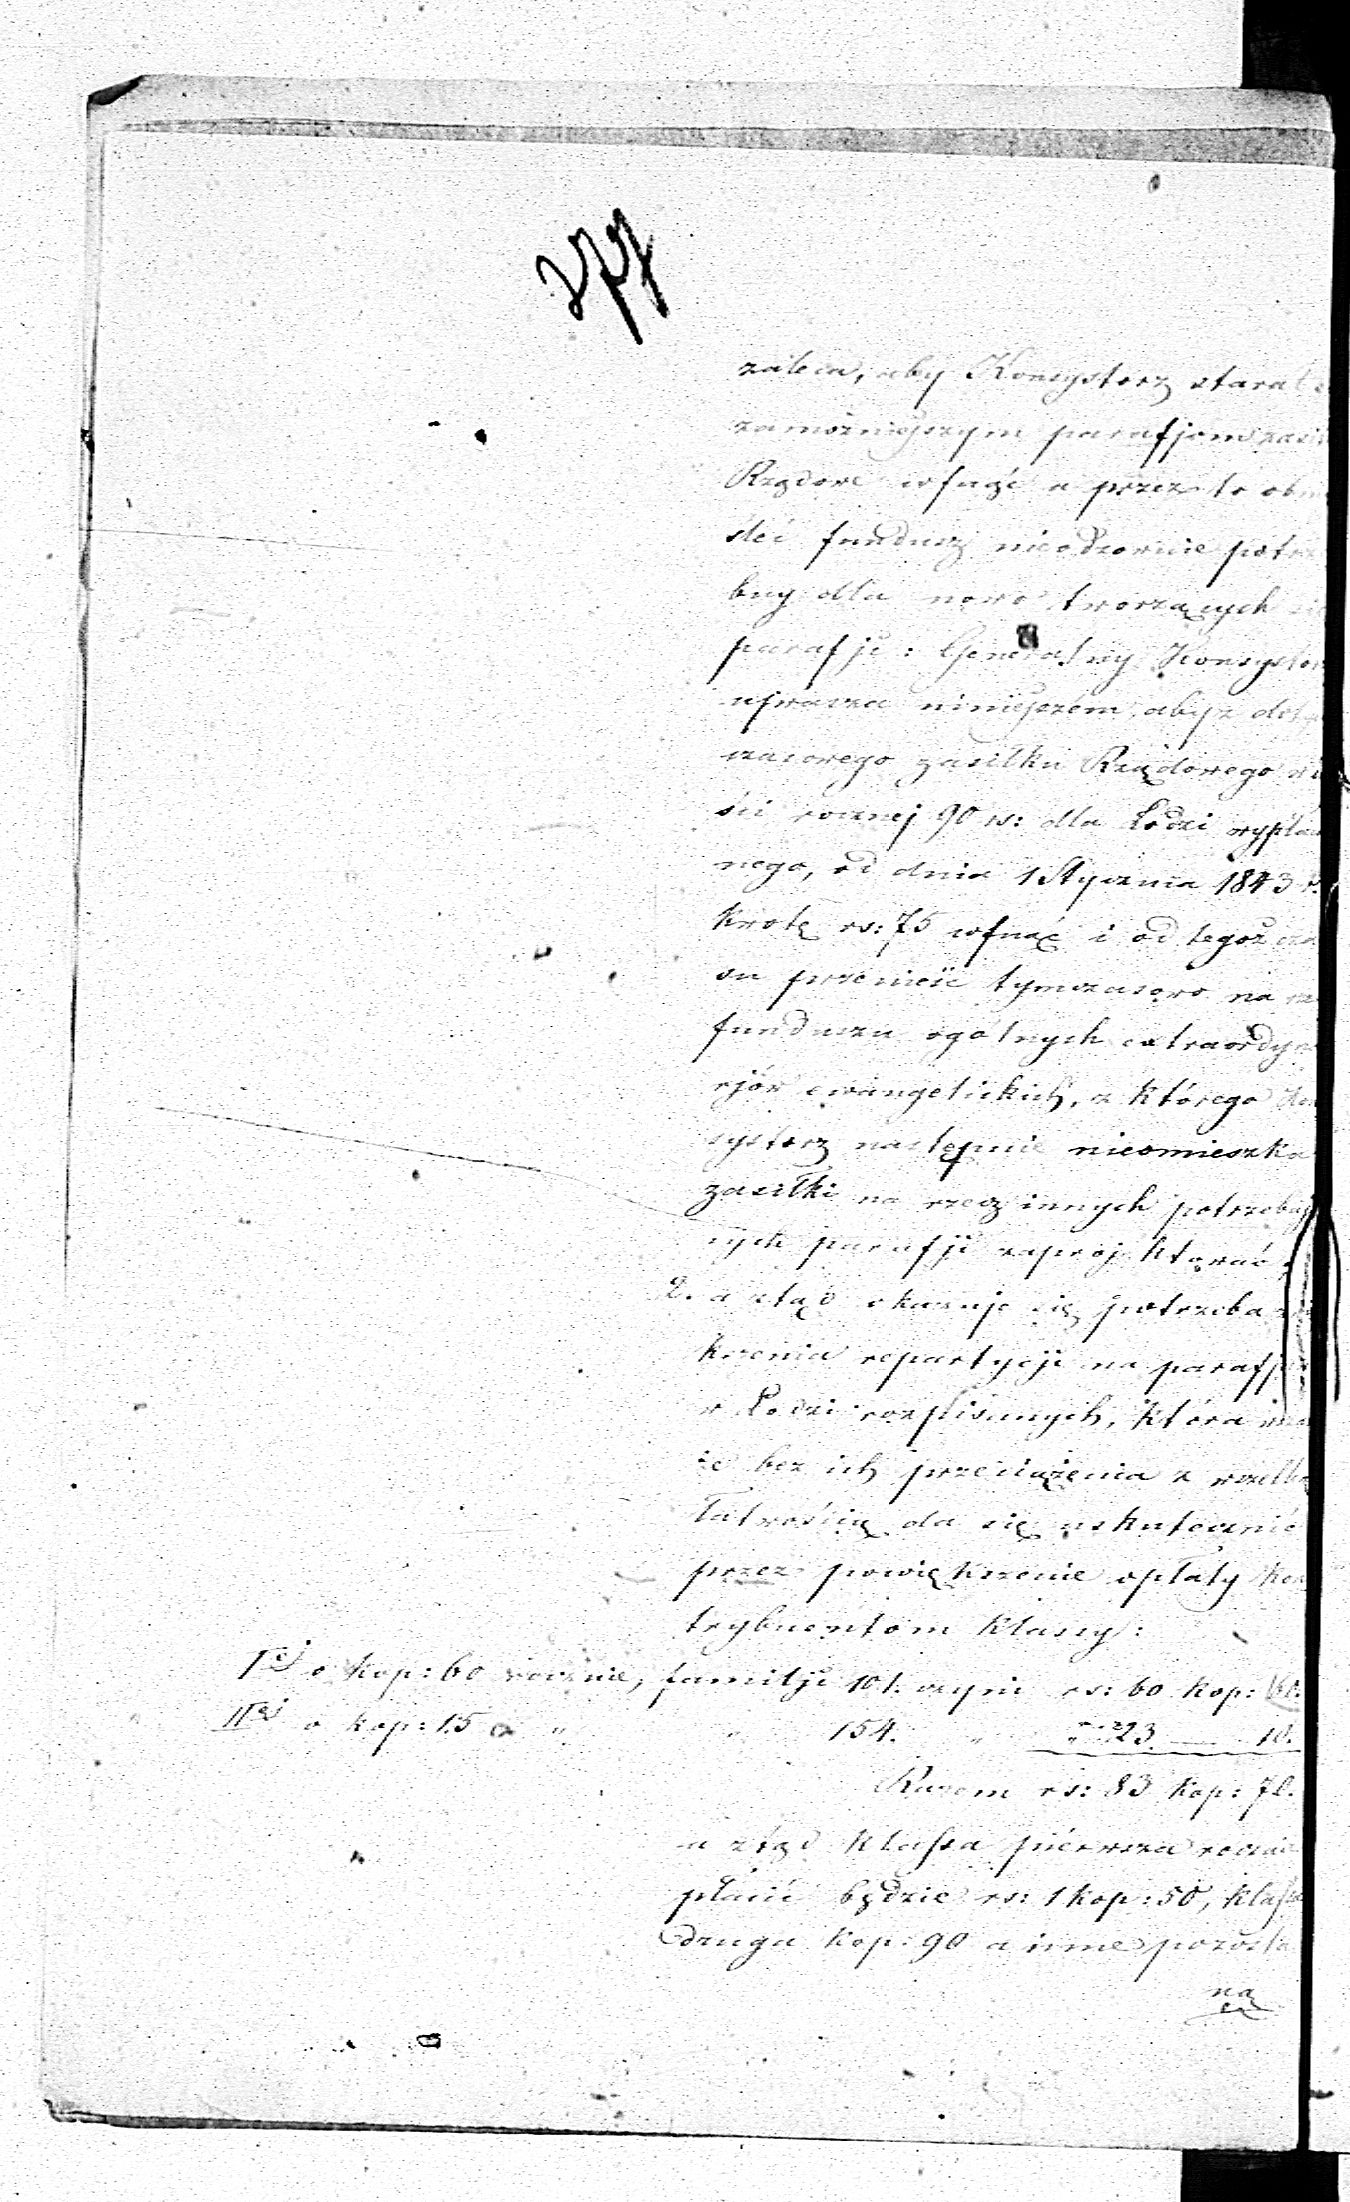 277
zaleca, aby Konsystorz starał
zamożniejszym parafjom zasi
Rządowe cofnąć a przez to obm
śleć fundusz nieodzownie potrz
bny dla nowo tworzących si
parafji: Generalny Konsystor
uprasza niniejszém, aby z doty
czasowego zasiłku Rządowego w i
ści rocznej 90 rs: dla Łodzi wypłac
nego, od dnia 1 Stycznia 1843 r.
kwotę rs: 75 cofnąć i od tegoż cza
su przenieść tymczasowo na rz
funduszu ogólnych extraordyn
rjów ewangelickich, z którego Kon
systorz następnie nieomieszka
zasiłki na rzecz innych potrzebuj
cych parafji zaprojektować
2. a ztąd okazuje się potrzeba
kszenia repartycji na parafj
w Łodzi rozpisanych, która
że bez ich przeciążenia z wszelką
łatwością da się uskutecznić
przez powiększenie opłaty kon
trybuentom klassy:
Iej o kop: 60 rocznie, familji 101. czyni rs: 60 kop: 60.
IIej o kop: 15 " " 154. " " 23 — 10.
Razem rs: 83 kop: 70.
a ztąd klassa piérwsza roczni
płacić będzie rs: 1 kop: 50, klass
druga kop: 90 a inne pozosta
ną